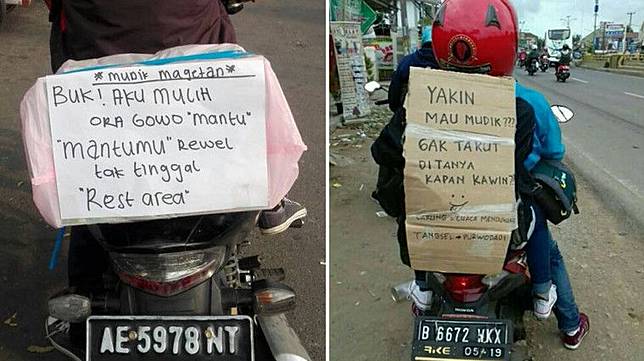 * mudik magetan *
BUK! AKU MULIH
ORA GOWO "mantu"
"mantumu" Rewel
tak tinggal
"Rest area"
AE 5978 NT
YAKIN
MAU MUDIK???
GAK TAKUT
DITANYA
KAPAN KAWIN?
CUACA MENDUNG
TANGSEL → PURWODADI
B 6672
05·19